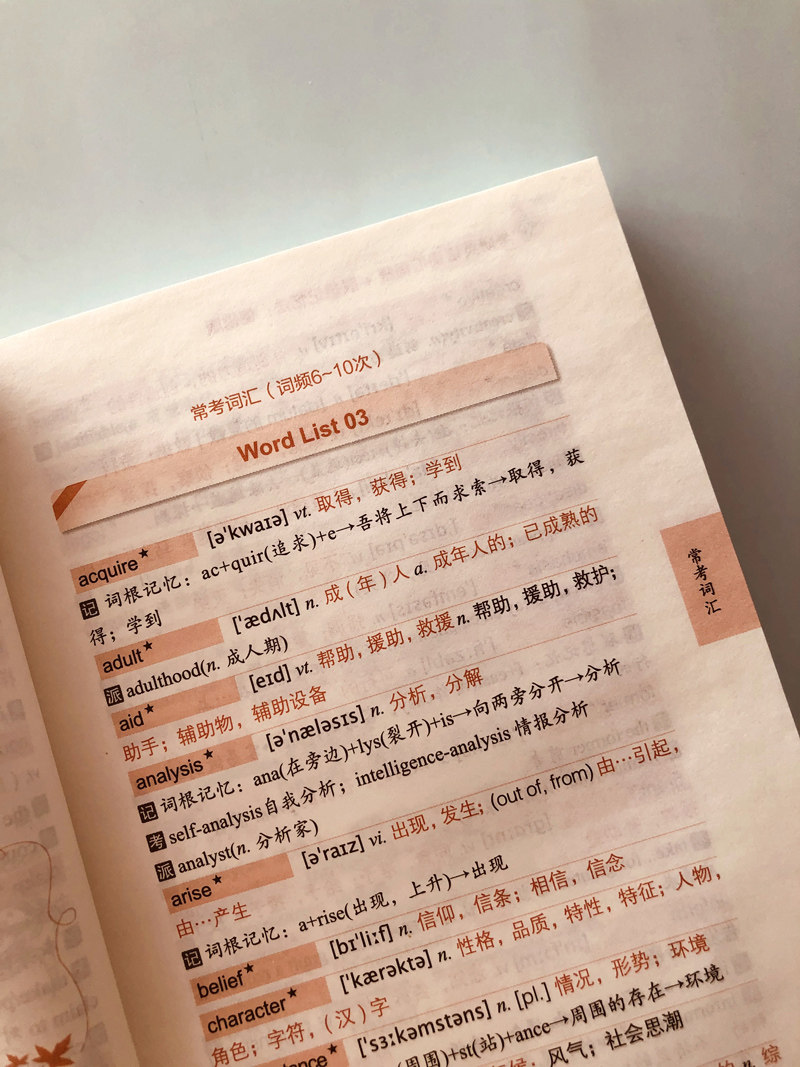 常考词汇（词频6~10次）
Word List 03
acquire★ [ə'kwaɪə] vt. 取得，获得；学到
记 词根记忆：ac+quir(追求)+e→吾将上下而求索→取得，获
得；学到
adult★ ['ædʌlt] n. 成（年）人 a. 成年人的；已成熟的
派 adulthood(n. 成人期)
aid★ [eɪd] vt. 帮助，援助，救援 n. 帮助，援助，救护；
助手；辅助物，辅助设备
analysis★ [ə'næləsɪs] n. 分析，分解
记 词根记忆：ana(在旁边)+lys(裂开)+is→向两旁分开→分析
考 self-analysis 自我分析；intelligence-analysis 情报分析
派 analyst(n. 分析家)
arise★ [ə'raɪz] vi. 出现，发生；(out of, from) 由…引起，
由…产生
记 词根记忆：a+rise(出现，上升)→出现
belief★ [bɪ'liːf] n. 信仰，信条；相信，信念
character★ ['kærəktə] n. 性格，品质，特性，特征；人物，
角色；字符，（汉）字
ance★ ['sɜːkəmstəns] n. [pl.] 情况，形势；环境
(周围)+st(站)+ance→周围的存在→环境
风气；社会思潮
n. 综
常考词汇